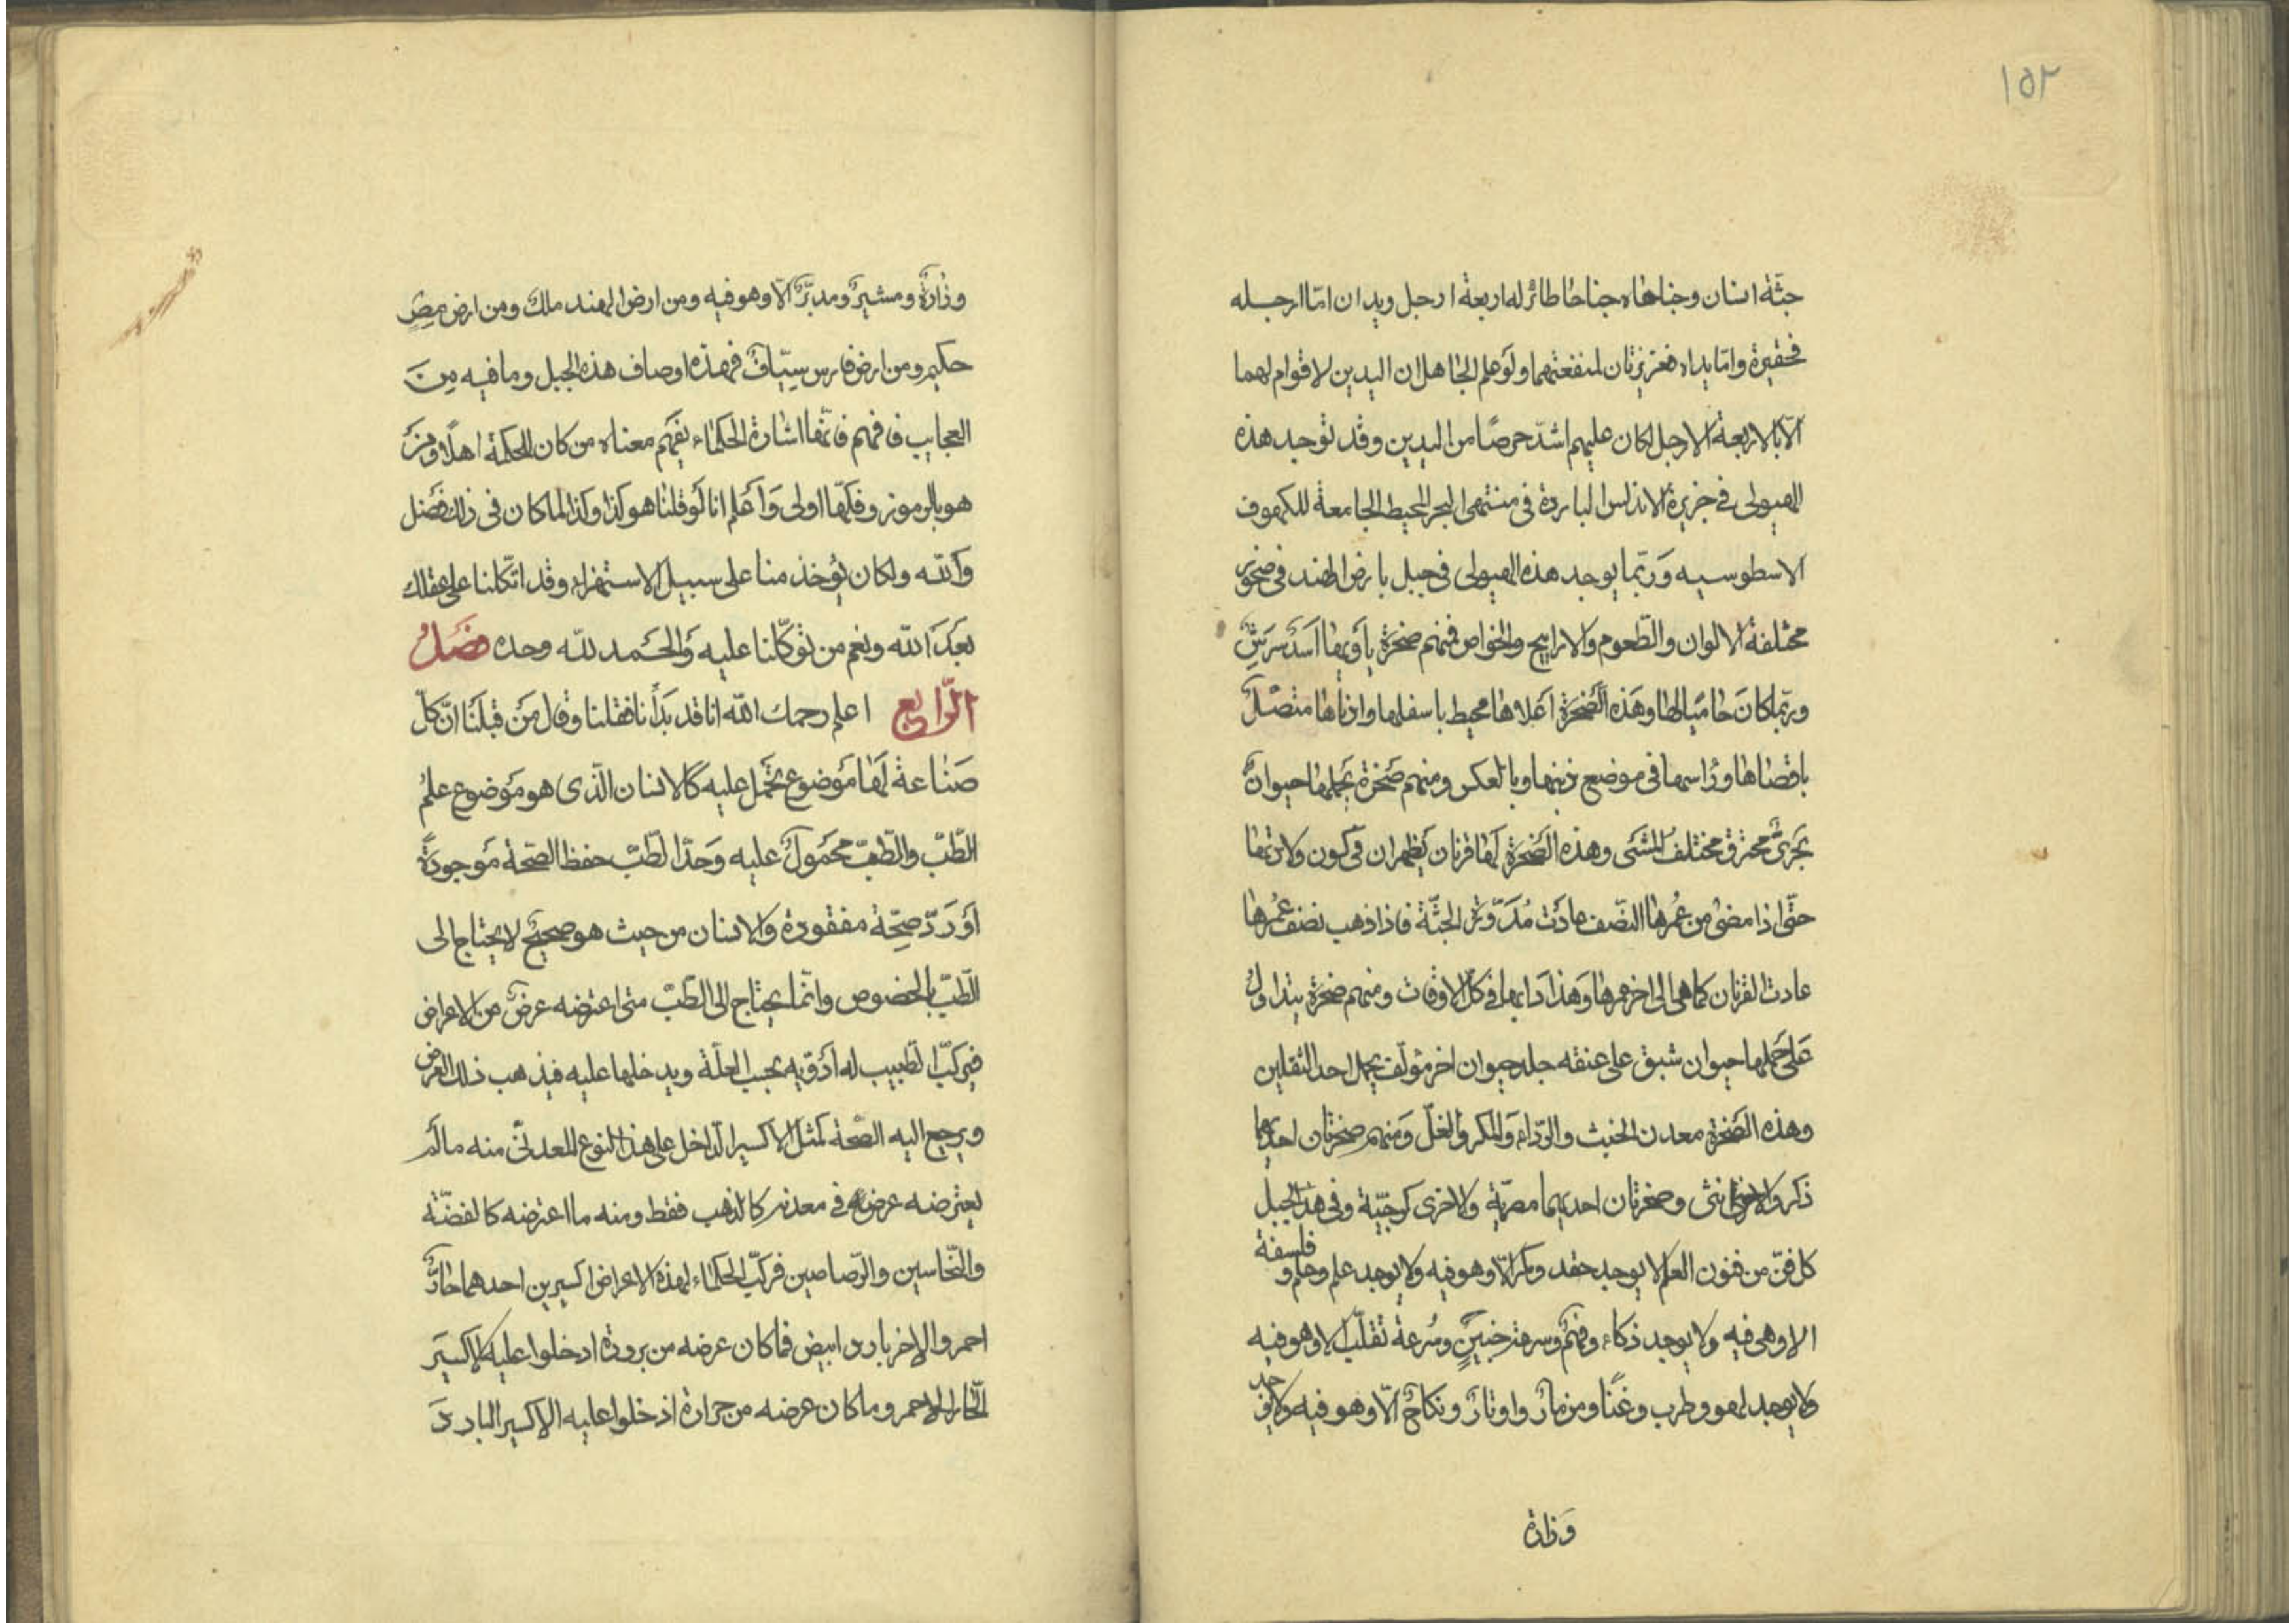 ١٥٢
جثة انسان وجناحاه جناحا طائر له اربعة ارجل ويدان امّا ارجله
فحقيرة وامّا يداه فعزيزتان لمنفعتهما ولَو علم الجاهل ان اليدين لا قوام لهما
الّا بالاربعة الارجل لكان عليهم اشدّ حرصًا من اليدين وقد توجد هذه
الهيولى فى جزيرة الاندلس الباردة فى منتهى البحر المحيط الجامعة للكهوف
الاسطوسيه وَربّما يوجد هذه الهيولى فى جبل بارض الهند فى صخور
مختلفة الالوان والطّعوم والاراييح والخواص فمنهم صخرة ياَويها اَسَدٌ شرِسٌ
وربّما كانَ حاميا لها وهَذه الصّخرَة اَعلاها محيط باسفلها واذناها متّصلٌ
باقصاها وراسها فى موضع ذنبها وبالعكس ومنهم صَخرة يحملها حيوانٌ
بحَرىٌّ محترق مختلف المشَى وهذه الصّخرَة لهَا قرنان يَظهران فى كون ولادتها
حتّى اذا مضى من عُمرها النصّف عادَت مُدَوّرة الجثّة فاذا ذهب نصف عُمُرها
عادت القرنان كما هى الى اخر عمرها وَهذا دابها فى كلّ الاوقات ومنهم صخرة يتداولُ
عَلى حَملها حيوان شبق على عنقه جلد حيوان اخر مؤلّف يحمل احد الثقلين
وهذه الصَخرة معدن الخبث والرّداء وَالمكر والغلّ وَمنهم صخرتان احديهما
ذكر والاخرى انثى وصخرتان احديهما مصريّة والاخرى كرجيّة وفى هذا الجبل
كل فنّ من فنون العلم لا يوجد حقد ومكر الّا وهو فيه ولا يوجد علم وحلم وفلسفة
الا وهى فيه ولا يوجد ذكاء وفهم وسرقة خبيثٍ وسُرعة تقلّب الا وهو فيه
ولا يوجد لهو وطرب وغنًا ومزمارٌ واوتارٌ ونكاحٌ الّا وهو فيه ولا يوجد
وَزارة
وزارةٌ ومشيرٌ ومدبّرٌ الّا وهو فيه ومن ارض الهند ملك ومن ارض مِصرٍ
حكيم ومن ارض فارس سيّافٌ فهذه اوصاف هذه الجبل وما فيه مِنَ
العجايب فافهم فانّها اشارة الحكماء يفهَم معناه من كان للحكمة اهلًا ومَنْ
هو بالرموز وفكّها اولى وَاَعلم انا لَو قلنا هو كذا وكذا لما كان فى ذلك فَضل
وَاللّه ولكان يؤخذ منا على سبيل الاستهزاء وقد اتّكلنا على عقلك
بَعدَ اللّه ونعم من توكّلنا عليه وَالحَمد للّه وحده فصَلُ
الرّابع اعلم رحمك اللّه انا قد بَدأنا فقلنا وقال مَن قبلَنا انّ كلّ
صَناعة لهَا مَوضوع تحمَل عليه كالانسان الّذى هو مَوضوع علمُ
الطّبّ والطّبّ محمُولٌ عليه وَحدّ الطّبّ حفظ الصّحّة مَوجودةً
اَو رَدّ صِحّة مفقودة والانسان من حيث هو صحيحٌ لا يحتاج الى
الطّبّ بالخصوص وانّما يحتاج الى الطّبّ متى اعترضه عرضٌ من الاعراض
فيركّب الطّبيب له اَدويه بحسب العلّة ويدخلها عليه فيذهب ذلك العرض
ويرجع اليه الصّحّة كمثل الاكسير الدّاخل على هذا النوع المعدنىّ منه ما لَم
يعترضه عرض فى معدنه كالذهب فقط ومنه ما اعترضه كالفضّة
والنّحاسين والرّصاصين فركّب الحكماء لهذه الاعراض اكسيرين احدهما حارٌّ
احمر والاخر بارد ابيض فما كان عرضه من برودة ادخلوا عليه الاكسيَر
الحّار الاحمر وما كان عرضه من حرارة ادخلوا عليه الاكسير الباردَ